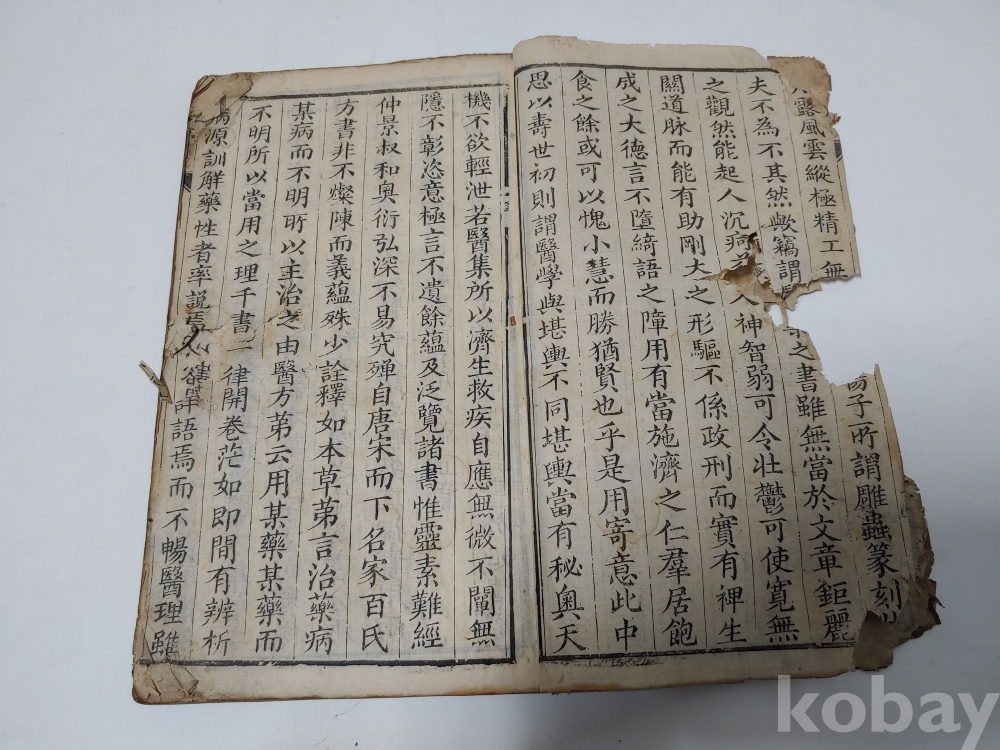 露風雲縱極精工無 楊子所謂雕蟲篆刻
夫不為不其然歟竊謂 之書雖無當於文章鉅麗
之觀然能起人沉痾 人神智弱可令壯鬱可使寬無
關道脉而能有助剛大之形軀不係政刑而實有裨生
成之大德言不墮綺語之障用有當施濟之仁羣居飽
食之餘或可以愧小慧而勝猶賢也乎是用寄意此中
思以壽世初則謂醫學與堪輿不同堪輿當有秘奧天
機不欲輕泄若醫集所以濟生救疾自應無微不闡無
隱不彰恣意極言不遺餘蘊及泛覽諸書惟靈素難經
仲景叔和奧衍弘深不易究殫自唐宋而下名家百氏
方書非不燦陳而義蘊殊少詮釋如本草苐言治藥病
某病而不明所以主治之由醫方苐云用某藥某藥而
不明所以當用之理千書一律開卷茫如即間有辨析
病源訓解藥性者率說焉 語焉而不暢醫理雖
kobay